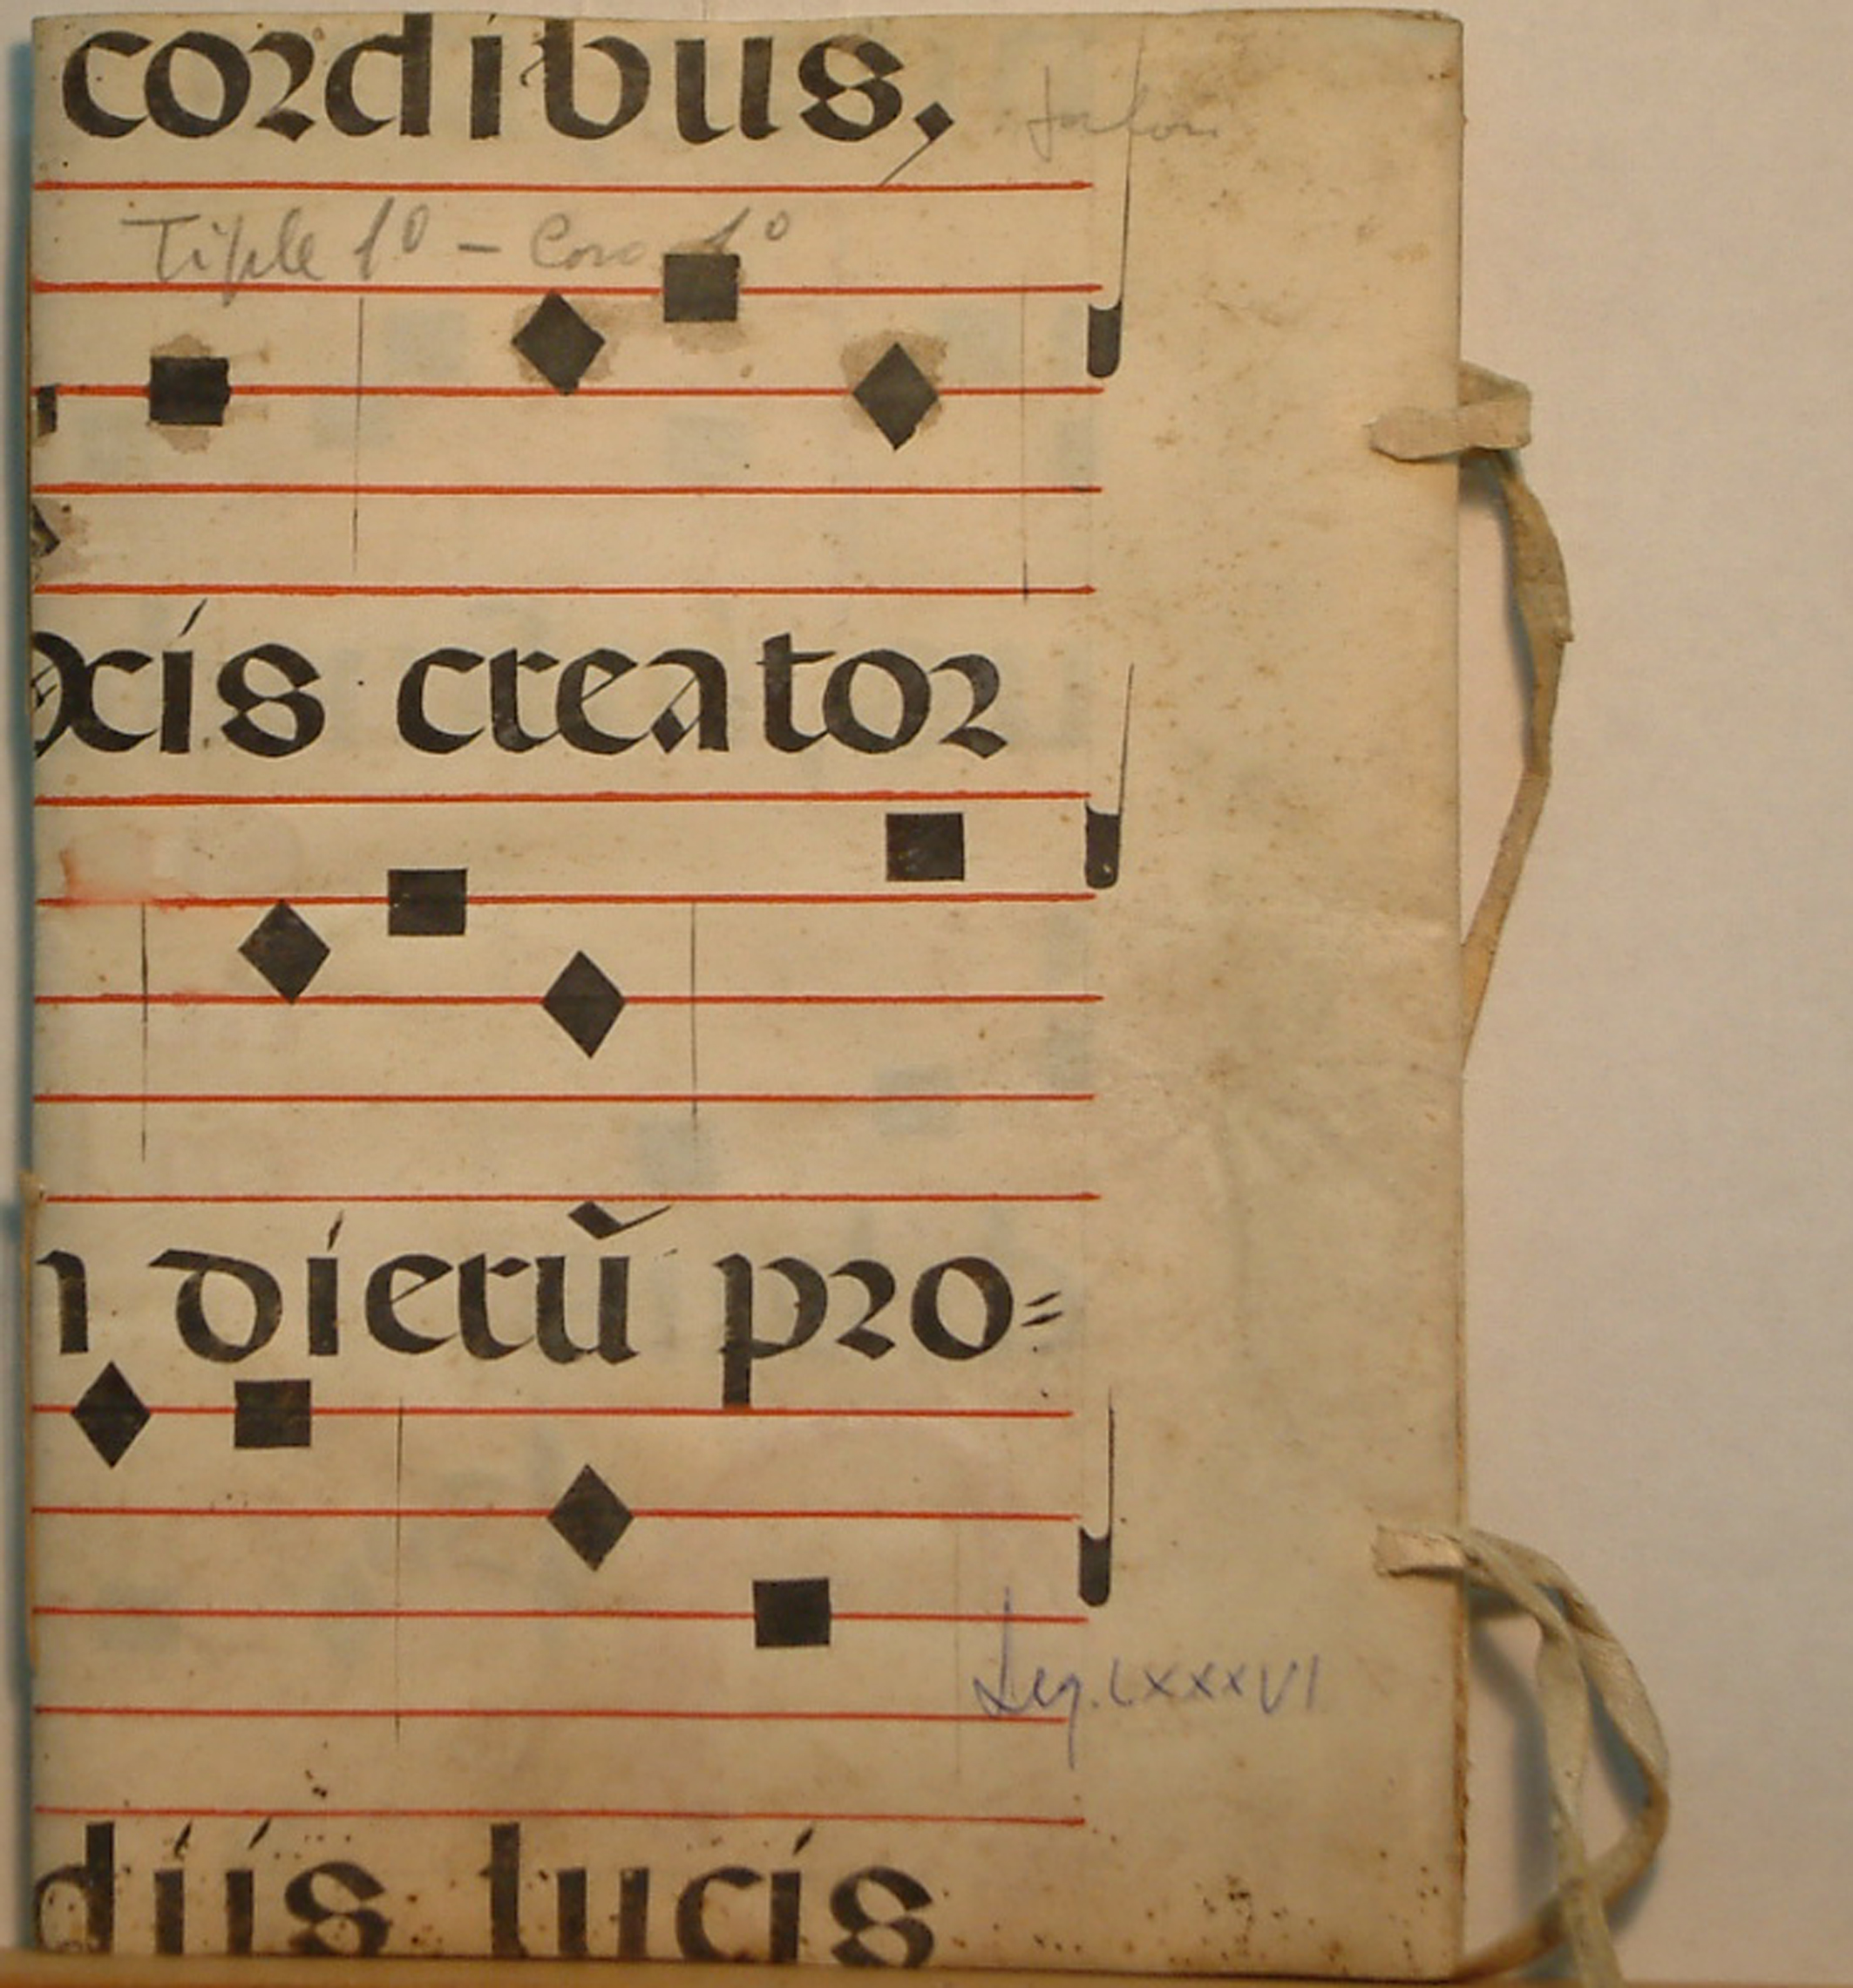 cordibus,
Tiple 1º - Coro 1º
xis creator
n dierũ pro=
Leg. LXXXVI
diis lucis